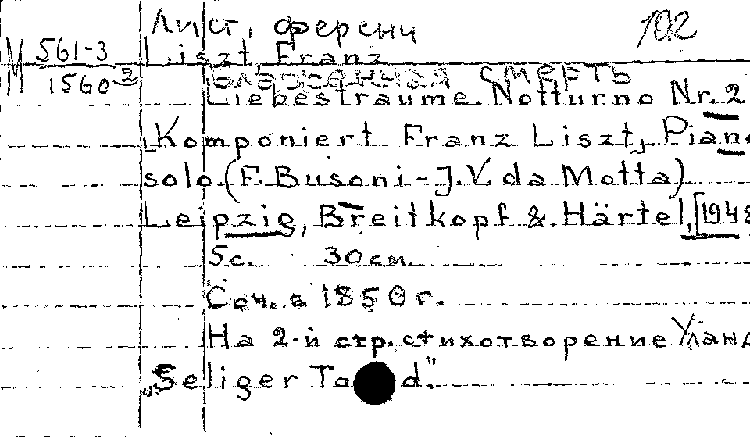 Лист, ференц 102
М 561-3 Liszt Franz
1560 2 Блаженная смерть
Liebesträume. Notturno Nr. 2
Komponiert Franz Liszt, Piano
solo. (F. Busoni-J.V. da Motta)
Leipzig, Breitkopf & Härtel, [1948
5с. 30 см.
Соч. в 1850 г.
На 2-й стр. стихотворение
„Seliger To d."